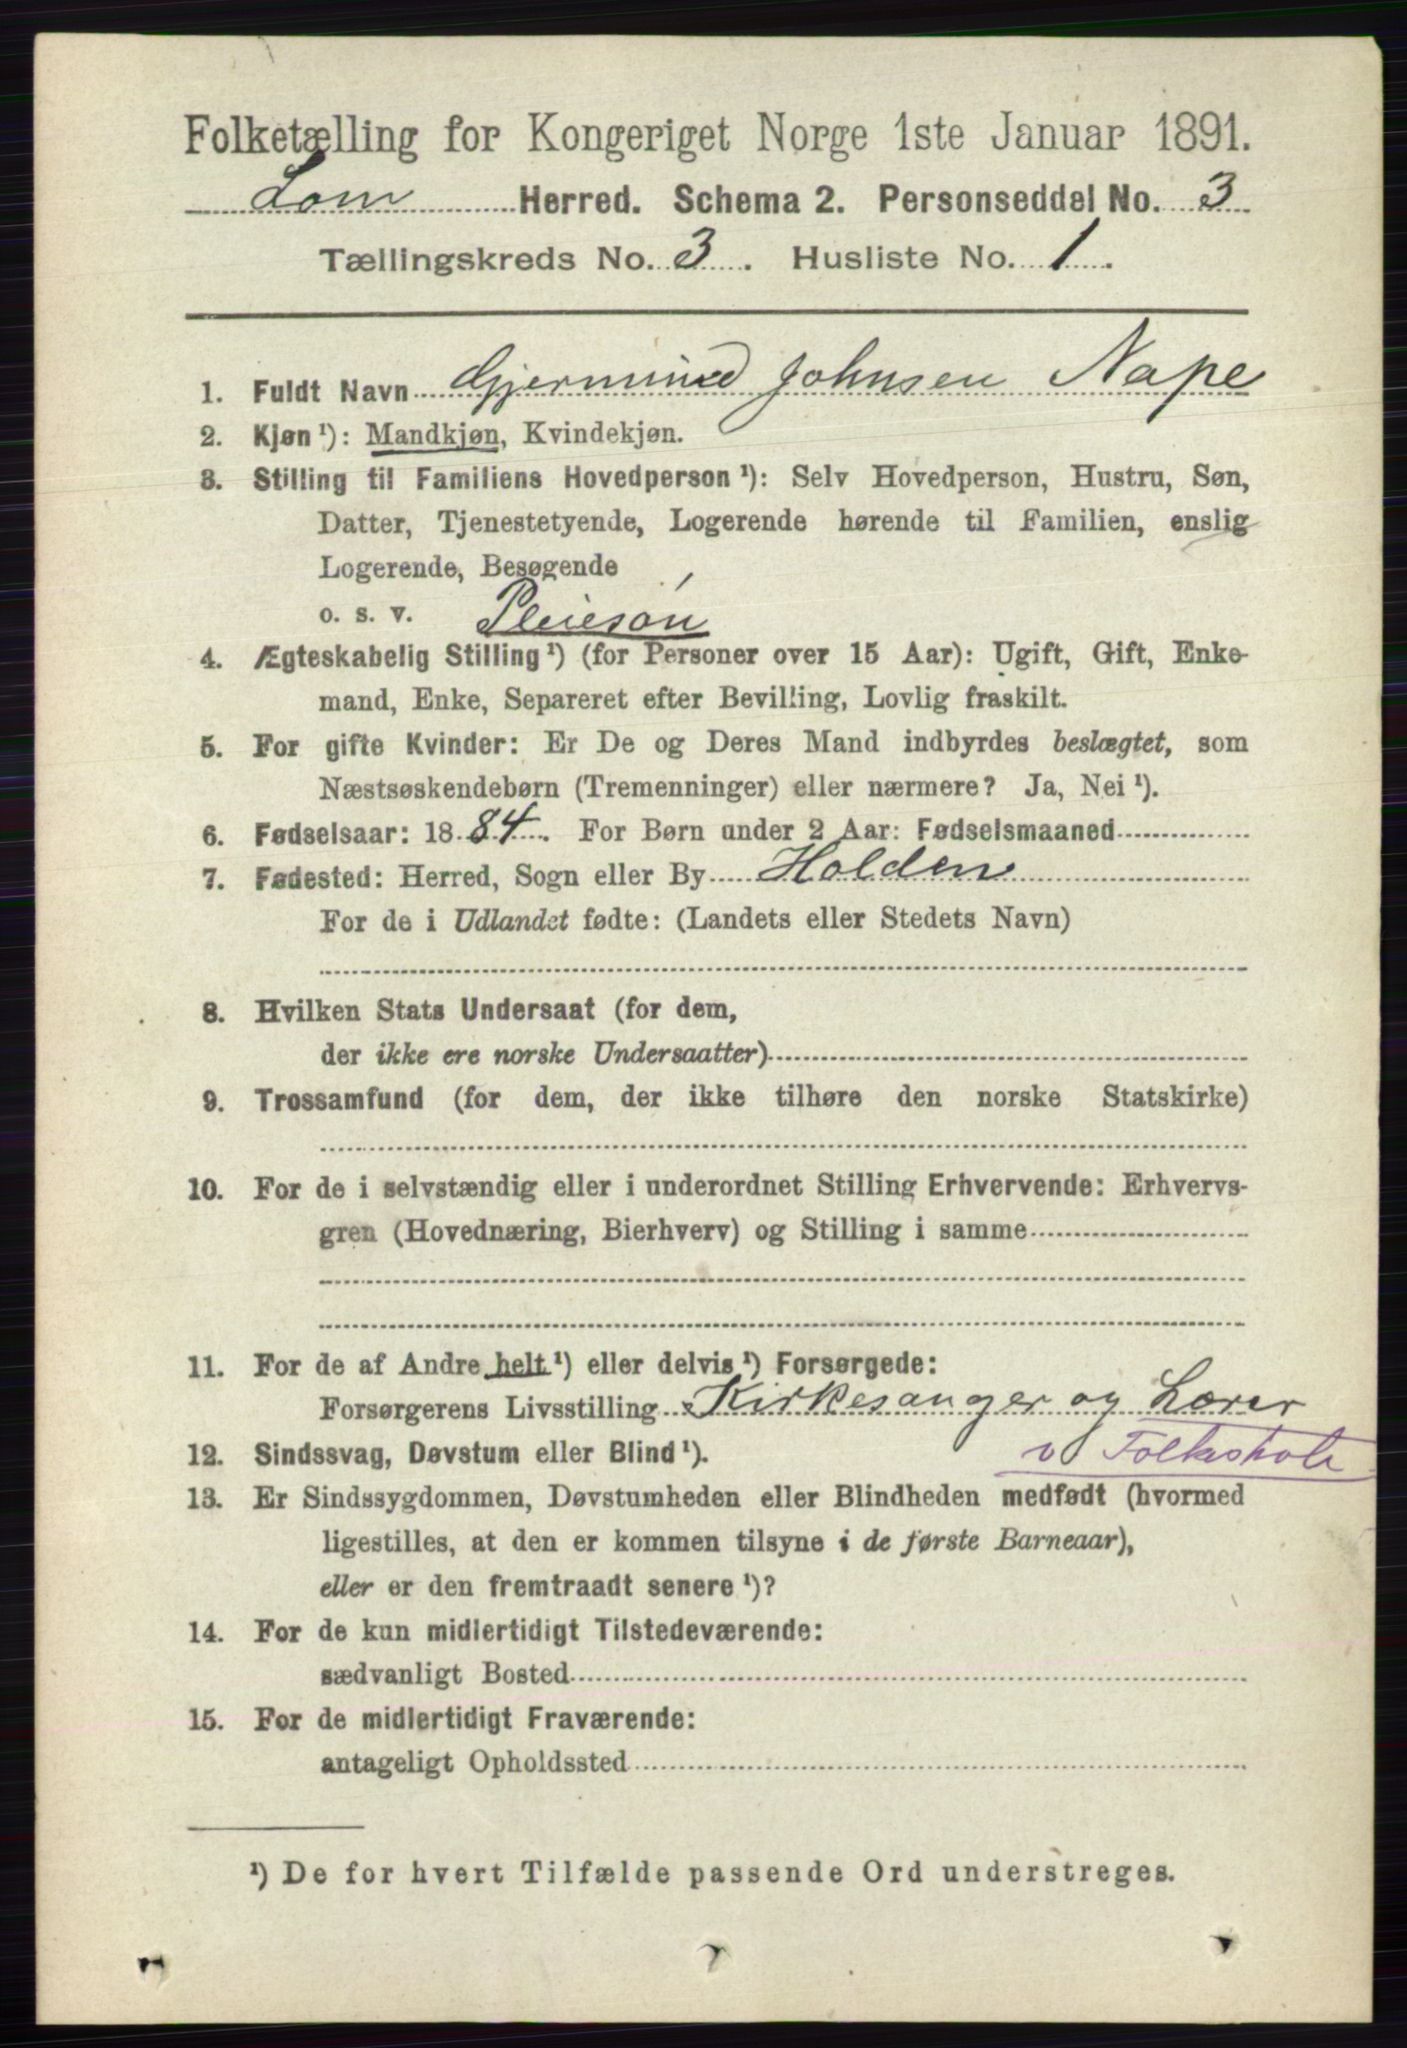 Folketælling for Kongeriget Norge 1ste Januar 1891.
Lom Herred. Schema 2. Personseddel No. 3
Tællingskreds No. 3. Husliste No. 1.
1. Fuldt Navn Gjermund Johnsen Nape
2. Kjøn ¹): Mandkjøn, Kvindekjøn.
3. Stilling til Familiens Hovedperson ¹): Selv Hovedperson, Hustru, Søn,
Datter, Tjenestetyende, Logerende hørende til Familien, enslig
Logerende, Besøgende
o. s. v. Pleiesøn
4. Ægteskabelig Stilling ¹) (for Personer over 15 Aar): Ugift, Gift, Enke-
mand, Enke, Separeret efter Bevilling, Lovlig fraskilt.
5. For gifte Kvinder: Er De og Deres Mand indbyrdes beslægtet, som
Næstsøskendebørn (Tremenninger) eller nærmere? Ja, Nei ¹).
6. Fødselsaar: 1884. For Børn under 2 Aar: Fødselsmaaned
7. Fødested: Herred, Sogn eller By Holden
For de i Udlandet fødte: (Landets eller Stedets Navn)
8. Hvilken Stats Undersaat (for dem,
der ikke ere norske Undersaatter)
9. Trossamfund (for dem, der ikke tilhøre den norske Statskirke)
10. For de i selvstændig eller i underordnet Stilling Erhvervende: Erhvervs-
gren (Hovednæring, Bierhverv) og Stilling i samme
11. For de af Andre helt ¹) eller delvis ¹) Forsørgede:
Forsørgerens Livsstilling Kirkesanger og Lærer
v Folkeskole
12. Sindssvag, Døvstum eller Blind ¹).
13. Er Sindssygdommen, Døvstumheden eller Blindheden medfødt (hvormed
ligestilles, at den er kommen tilsyne i de første Barneaar),
eller er den fremtraadt senere ¹)?
14. For de kun midlertidigt Tilstedeværende:
sædvanligt Bosted
15. For de midlertidigt Fraværende:
antageligt Opholdssted
¹) De for hvert Tilfælde passende Ord understreges.